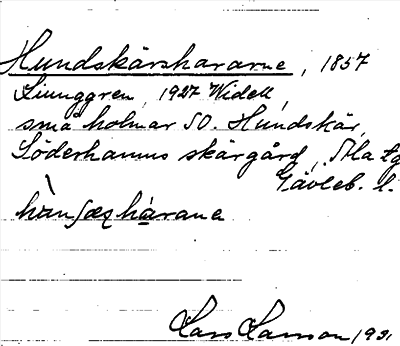 Hundskärshararne, 1857
Ljunggren, 1927 Widell,
små holmar SO. Hundskär,
Söderhamns skärgård,
Gävleb. l.
Lars Larsson, 193